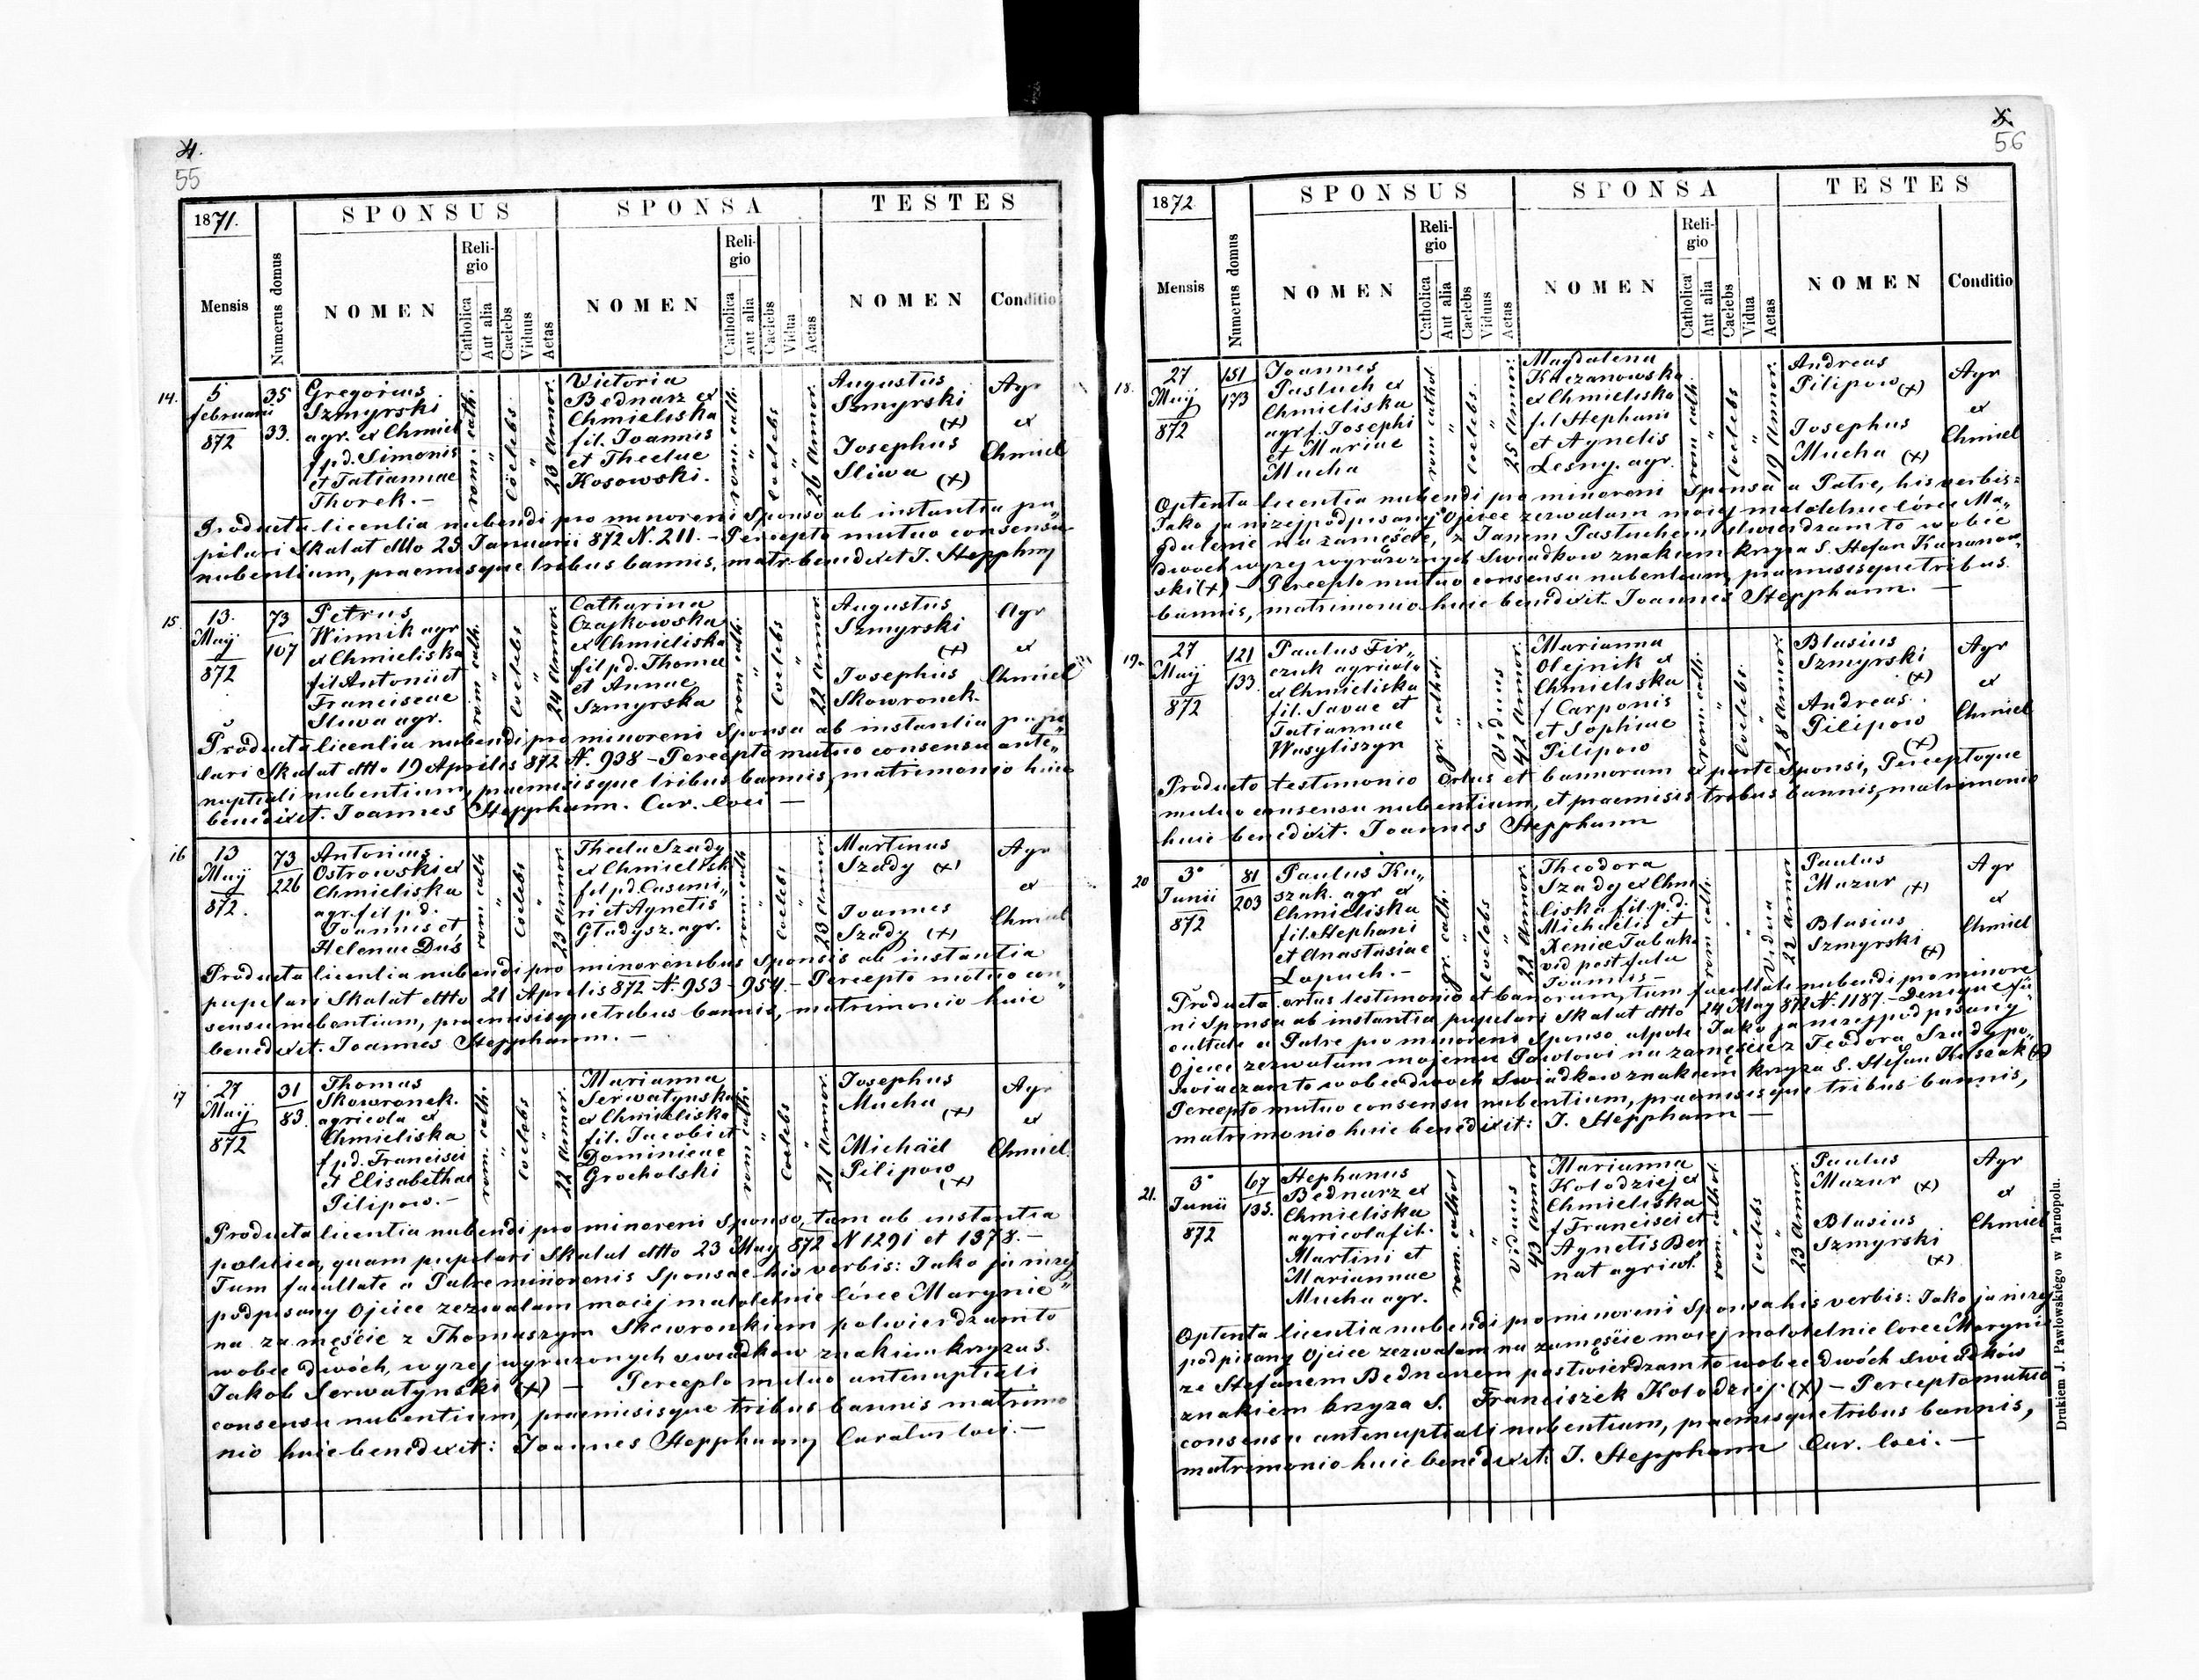 4.
55
1871.
Mensis
Numerus domus
SPONSUS
NOMEN
Reli-
gio
Catholica
Aut alia
Caelebs
Viduus
Aetas
SPONSA
NOMEN
Reli-
gio
Catholica
Aut alia
Caelebs
Vidua
Aetas
TESTES
NOMEN
Conditio
14.
5
februarii
872
35
33.
Gregorius
Szmyrski
agr. ex Chmiel
f p.d. Simonis
et Tatiannae
Thorek.-
rom. cath.
"
Cöelebs
"
23 annor.
Victoria
Bednarz ex
Chmieliska
fil. Joannis
et Theclae
Kosowski.
rom. cath.
"
Coelebs
"
26 annor.
Augustus
Szmyrski
(+)
Josephus
Sliwa (+)
Agr
ex
Chmiel
Producta licentia nubendi pro minoreni Sponso ab instantia pu„
pilari Skalat dtto 25 Januarii 872 N. 211. - Percepto mutuo consensu
nubentium, praemisque tribus bannis, matr. benedixit J. Stepphan
15.
13.
Maij
872
73
107
Petrus
Winnik agr
ex Chmieliska
fil Antonii et
Franciscae
Sliwa agr.
rom cath.
"
Coelebs
"
24 annor.
Catharina
Czajkowska
ex Chmieliska
fil p.d. Thomae
et Annae
Szmyrska
rom cath.
"
Coelebs
"
22 annor.
Augustus
Szmyrski
(+)
Josephus
Skowronek.
Agr
ex
Chmiel
Producta licentia nubendi pro minoreni Sponsa ab instantia pupi„
lari Skalat dtto 19 Aprilis 872 N. 938 - Percepto mutuo consensu ante„
nuptiali nubentium, praemisisque tribus bannis, matrimonio huic
benedixit. Joannes Stepphann. Cur. loci —
16
13
Maij
872.
73
226
Antonius
Ostrowski ex
Chmieliska
agr. fil p.d.
Joannis et
Helenae Duś
rom cath
"
Coelebs
"
23 annor.
Thecla Szady
ex Chmielisk
fil p.d. Casimi„
ri et Agnetis
Gładysz. agr.
rom. cath
"
Coelebs
"
23 annor.
Martinus
Szady (+)
Joannes
Szady (+)
Agr
ex
Chmiel
Producta licentia nubendi pro minorenibus Sponsis ab instantia
pupilari Skalat dtto 21 Aprilis 872 N. 953 - 954. - Percepto mutuo con„
sensu nubentium, praemisisque tribus bannis, matrimonio huic
benedixit. Joannes Stepphann. —
17
27
Maij
872
31
83.
Thomas
Skowronek.
agricola ex
Chmieliska
f p.d. Francisci
et Elisabethae
Pilipow. -
rom. cath.
"
Coelebs
"
22 annor.
Marianna
Serwatynska
ex Chmieliska
fil. Jacobi et
Dominicae
Grocholski
rom cath.
"
Coelebs
"
21 annor.
Josephus
Mucha
(+)
Michäel
Pilipow
(+)
Agr
ex
Chmiel.
Producta licentia nubendi pro minoreni Sponso, tam ab instantia
politica, quam pupilari Skalat dtto 23 May 872 N 1291 et 1378. -
Tum facultate a Patre minorenis Sponsae his verbis: Jako ja niżej
podpisany Ojciec zezwalam mojej małoletnie Córce Marynie"
na zamęście z Thomaszym Skowronkiem potwierdzam to
wobec dwóch, wyzej wyrazonych swiadkow znakiem krzyza S.
Jakob Serwatynski (+) — Percepto mutuo antenuptiali
consensu nubentium, praemisisque tribus bannis matrimo
nio huic benedixit: Joannes Stepphann Curatus loci. —
5.
56
1872.
Mensis
Numerus domus
SPONSUS
NOMEN
Reli-
gio
Catholica
Aut alia
Caelebs
Viduus
Aetas
SPONSA
NOMEN
Reli-
gio
Catholica
Aut alia
Caelebs
Vidua
Aetas
TESTES
NOMEN
Conditio
18.
27
Maij
872
151
173
Joannes
Pastuch ex
Chmieliska
agr f. Josephi
et Mariae
Mucha
rom cathol
"
Coelebs.
"
25 annor.
Magdalena
Kaczanowska
ex Chmieliska
fil Stephani
et Agnetis
Lesny. agr.
rom cath.
"
Coelebs
"
19 annor.
Andreas
Pilipow (+)
Josephus
Mucha (+)
Agr
ex
Chmiel
Optenta licentia nubendi pro minoreni Sponsa a Patre, his verbis:
Jako ja niżej podpisany Ojciec zezwalam mojej małoletnie Córce Ma„
gdalenie na zamęście, z Janem Pastuchem stwierdzam to wobec
dwóch wyzej wyrazonych Swiadkow znakiem krzyza S. Stefan Kaczanow„
ski (+) — Percepto mutuo consensu nubentium, praemisisque tribus
bannis, matrimonio huic benedixit. Joannes Stepphann. —
19.
27
Maij
872
121
133.
Paulus Fir„
czuk agricola
ex Chmieliska
fil. Savae et
Tatiannae
Wasyliszyn
gr. cathol.
"
Viduus
"
42 annor.
Marianna
Olejnik ex
Chmieliska
f Carponis
et Sophiae
Pilipow
rom cath.
"
Coelebs.
"
28 annor.
Blasius
Szmyrski
(+)
Andreas
Pilipow
(+)
Agr
ex
Chmiel
Producto testimonio Ortus et bannorum ex parte Sponsi, Perceptoque
mutuo consensu nubentium, et praemisis tribus bannis, matrimonio
huic benedixit. Joannes Stepphann
20
3°
Junii
872
81
203
Paulus Ku„
szak. agr ex
Chmieliska
fil. Stephani
et Anastasiae
Lapuch. -
gr. cath.
"
Coelebs
"
22 annor.
Theodora
Szady ex Chm
liska fil. p.d.
Michaelis et
Xeniae Tabak
vid post fata
Joannis -
rom cath.
"
Vidua
22 annor
Paulus
Mazur (+)
Blasius
Szmyrski
(+)
Agr
ex
Chmiel
Producta ortus testimonio et bannorum, tum facultate nubendi pro minore
ni Sponsa ab instantia pupilari Skalat dtto 24 May 872 N. 1187. - Denique fa„
cultate a Patre pro minoreni Sponso utpote: Jako ja nizej podpisany
Ojciec zezwalam mojemu Pawlowi na zamęście z Teodora Szady po„
swiaczam to wobec dwoch Swiadkow znakiem krzyza S. Stefan Kuszak (+)
Percepto mutuo consensu nubentium, praemisisque tribus bannis,
matrimonio huic benedixit: J. Stepphann —
21.
3°
Junii
872
67
135.
Stephanus
Bednarz ex
Chmieliska
agricola fil.
Martini et
Mariannae
Mucha agr.
rom. cathol
"
Viduus
43 annor
Marianna
Kolodziej ex
Chmieliska
f Francisci et
Agnetis Ber
nat agricol.
rom. cathol.
"
Coelebs
"
23 annor.
Paulus
Mazur (+)
Blasius
Szmyrski
(+)
Agr
ex
Chmiel
Optenta licentia nubendi pro minoreni Sponsa his verbis: Jako ja nizej
podpisany Ojciec zezwalam na zamęście mojej małoletnie Corce Maryni
ze Stefanem Bednarzem postwierdzam to wobec dwóch Swiadków
znakiem krzyza S. Franciszek Kolodziej (+) — Percepto mutuo
consensu antenuptiali nubentium, praemisque tribus bannis,
matrimonio huic benedixit J. Stepphann Cur. loci. —
Drukiem J. Pawłowskiego w Tarnopolu.